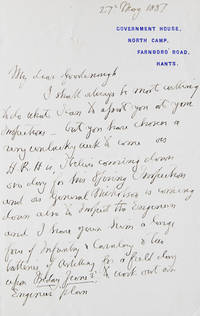 27th May 1887
GOVERNMENT HOUSE,
NORTH CAMP,
FARNBORO' ROAD,
HANTS.
My dear Goodenough
I shall always be most willing
to do what I can to assist you at your
Inspections - but you have chosen a
very unlucky week to come as
H.R.H. is, I believe coming down
one day for his Spring Inspection
and as General Nicholson is coming
down also to inspect the Engineers
and I have given him a large
force of Infantry & Cavalry & two
batteries of Artillery for a field day
upon to work out an
Engineer plan